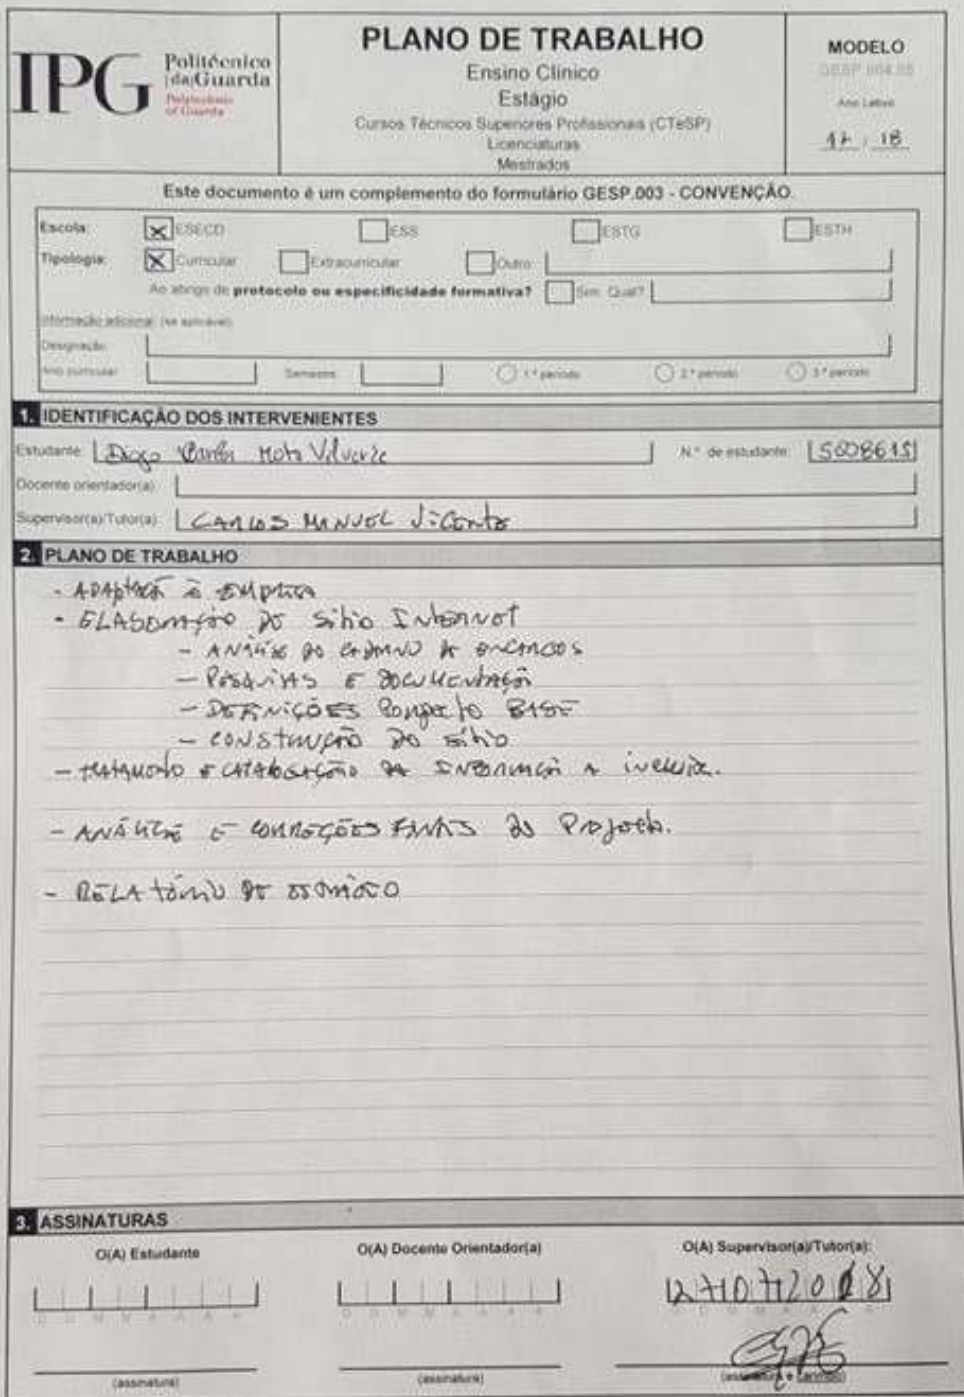 IPG Politécnico |da|Guarda
Polytechnic of Guarda
PLANO DE TRABALHO
Ensino Clínico
Estágio
Cursos Técnicos Superiores Profissionais (CTeSP)
Licenciaturas
Mestrados
MODELO
GESP.004.05
Ano Letivo
17 / 18
Este documento é um complemento do formulário GESP.003 - CONVENÇÃO.
Escola: ESECD ESS ESTG ESTH
Tipologia: Curricular Extracurricular Outro:
Ao abrigo de protocolo ou especificidade formativa? Sim. Qual?
Informação adicional: (se aplicável)
Designação:
Ano curricular: Semestre: 1.º período 2.º período 3.º período
1. IDENTIFICAÇÃO DOS INTERVENIENTES
Estudante: Diogo Mota N.º de estudante: 5008615
Docente orientador(a):
Supervisor(a)/Tutor(a): CARLOS MANUEL Vicente
2. PLANO DE TRABALHO
- ADAptação à EMPresa
- ELABORAÇÃO DO Sítio INTERNET
- ANÁLISE DO CADERNO DE ENCARGOS
- PESQUISAS E DOCUMENTAÇÃO
- DEFINIÇÕES BASE
- CONSTRUÇÃO DO sítio
- TRATAMENTO E CATALOGAÇÃO DA INFORMAÇÃO A incluir.
- ANÁLISE E CORREÇÕES FINAIS DO Projecto.
- RELATÓRIO DE ESTÁGIO
3. ASSINATURAS
O(A) Estudante
O(A) Docente Orientador(a)
O(A) Supervisor(a)/Tutor(a):
27 07 2018
D D M M A A A A
D D M M A A A A
(assinatura)
(assinatura)
(assinatura e carimbo)